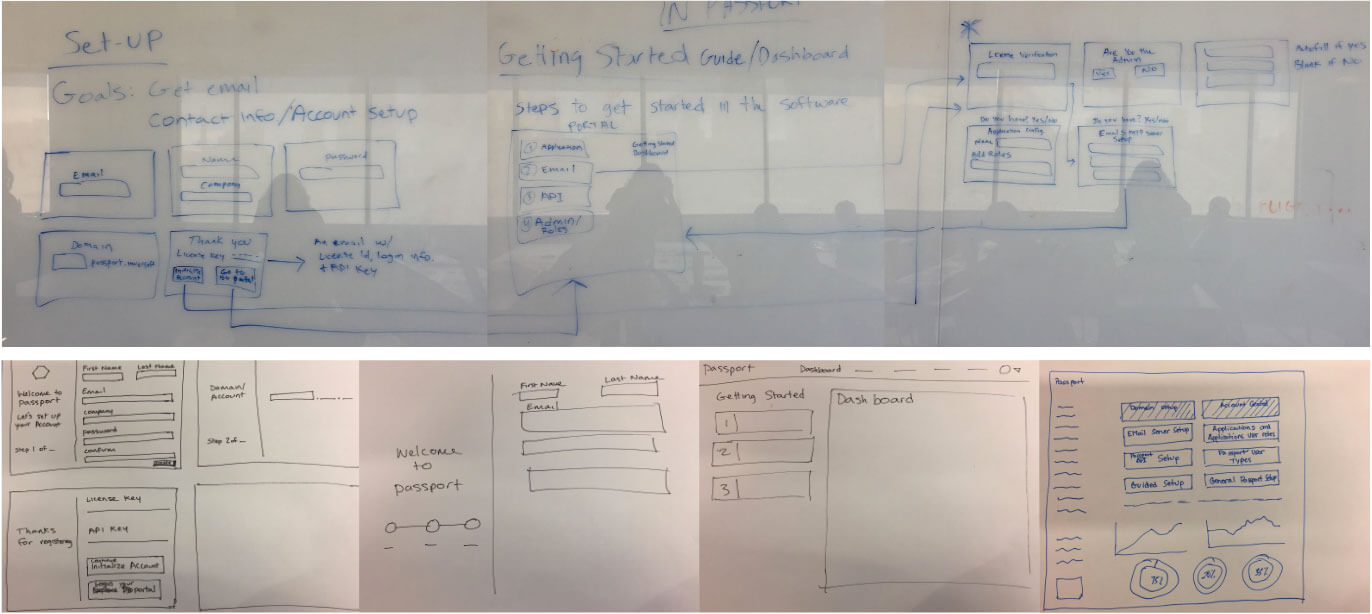 Set-UP
Goals: Get email
Contact info/Account Setup
Email
Name
Company
Password
Domain
Thank you
License Key
Go to
Portal
Account
An email w/
License Id, login info.
+ API Key
IN PASSPORT
Getting Started Guide/Dashboard
Steps to get started in the software
PORTAL
① Application
② Email
③ API
④ Admin/
Roles
Getting Started
Dashboard
License Verification
Are you the
Admin
Yes
No
Autofill if yes
Blank if No
Do you have? Yes/No
Application Config
Name
Add Roles
Do you have? Yes/No
Email
Server
Setup
First Name
Last Name
Welcome to
Passport
Let's set up
your Account
Step 1 of _
Email
Company
Password
Confirm
Domain/
Account
Step 2 of _
Thanks
for registering
License Key
API Key
Initialize Account
portal
Welcome
to
passport
First Name
Last Name
Email
Passport
Dashboard
Getting Started
1
2
3
Dash board
Passport
Domain Setup
Account Created
EMail Server Setup
Applications and
Applications User roles
API Setup
Passport User
Types
Guided Setup
General Passport Setup
75%